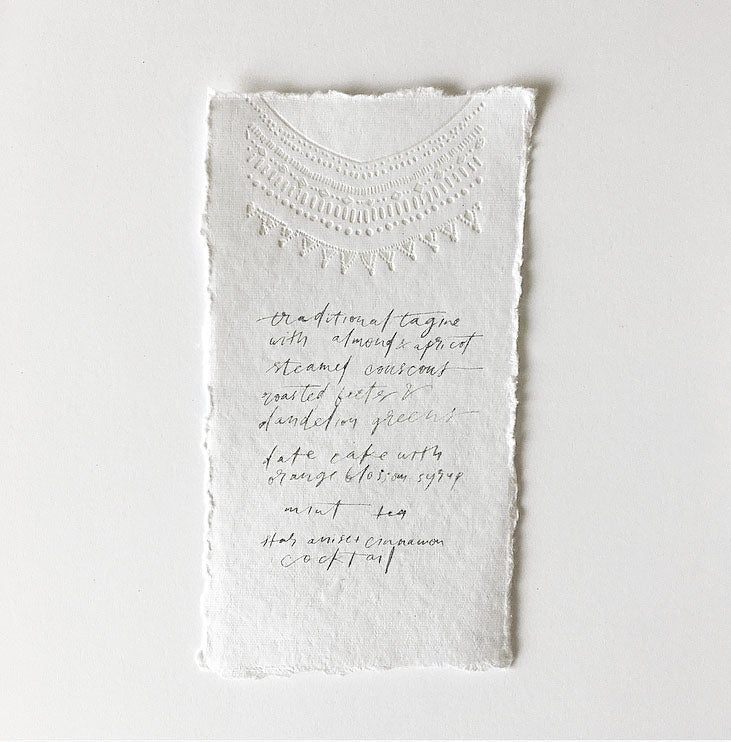 traditional tagine
with almond & apricot
steamed couscous
roasted beets &
dandelion greens
date cake with
orange blossom syrup
mint tea
star anise + cinnamon
cocktail